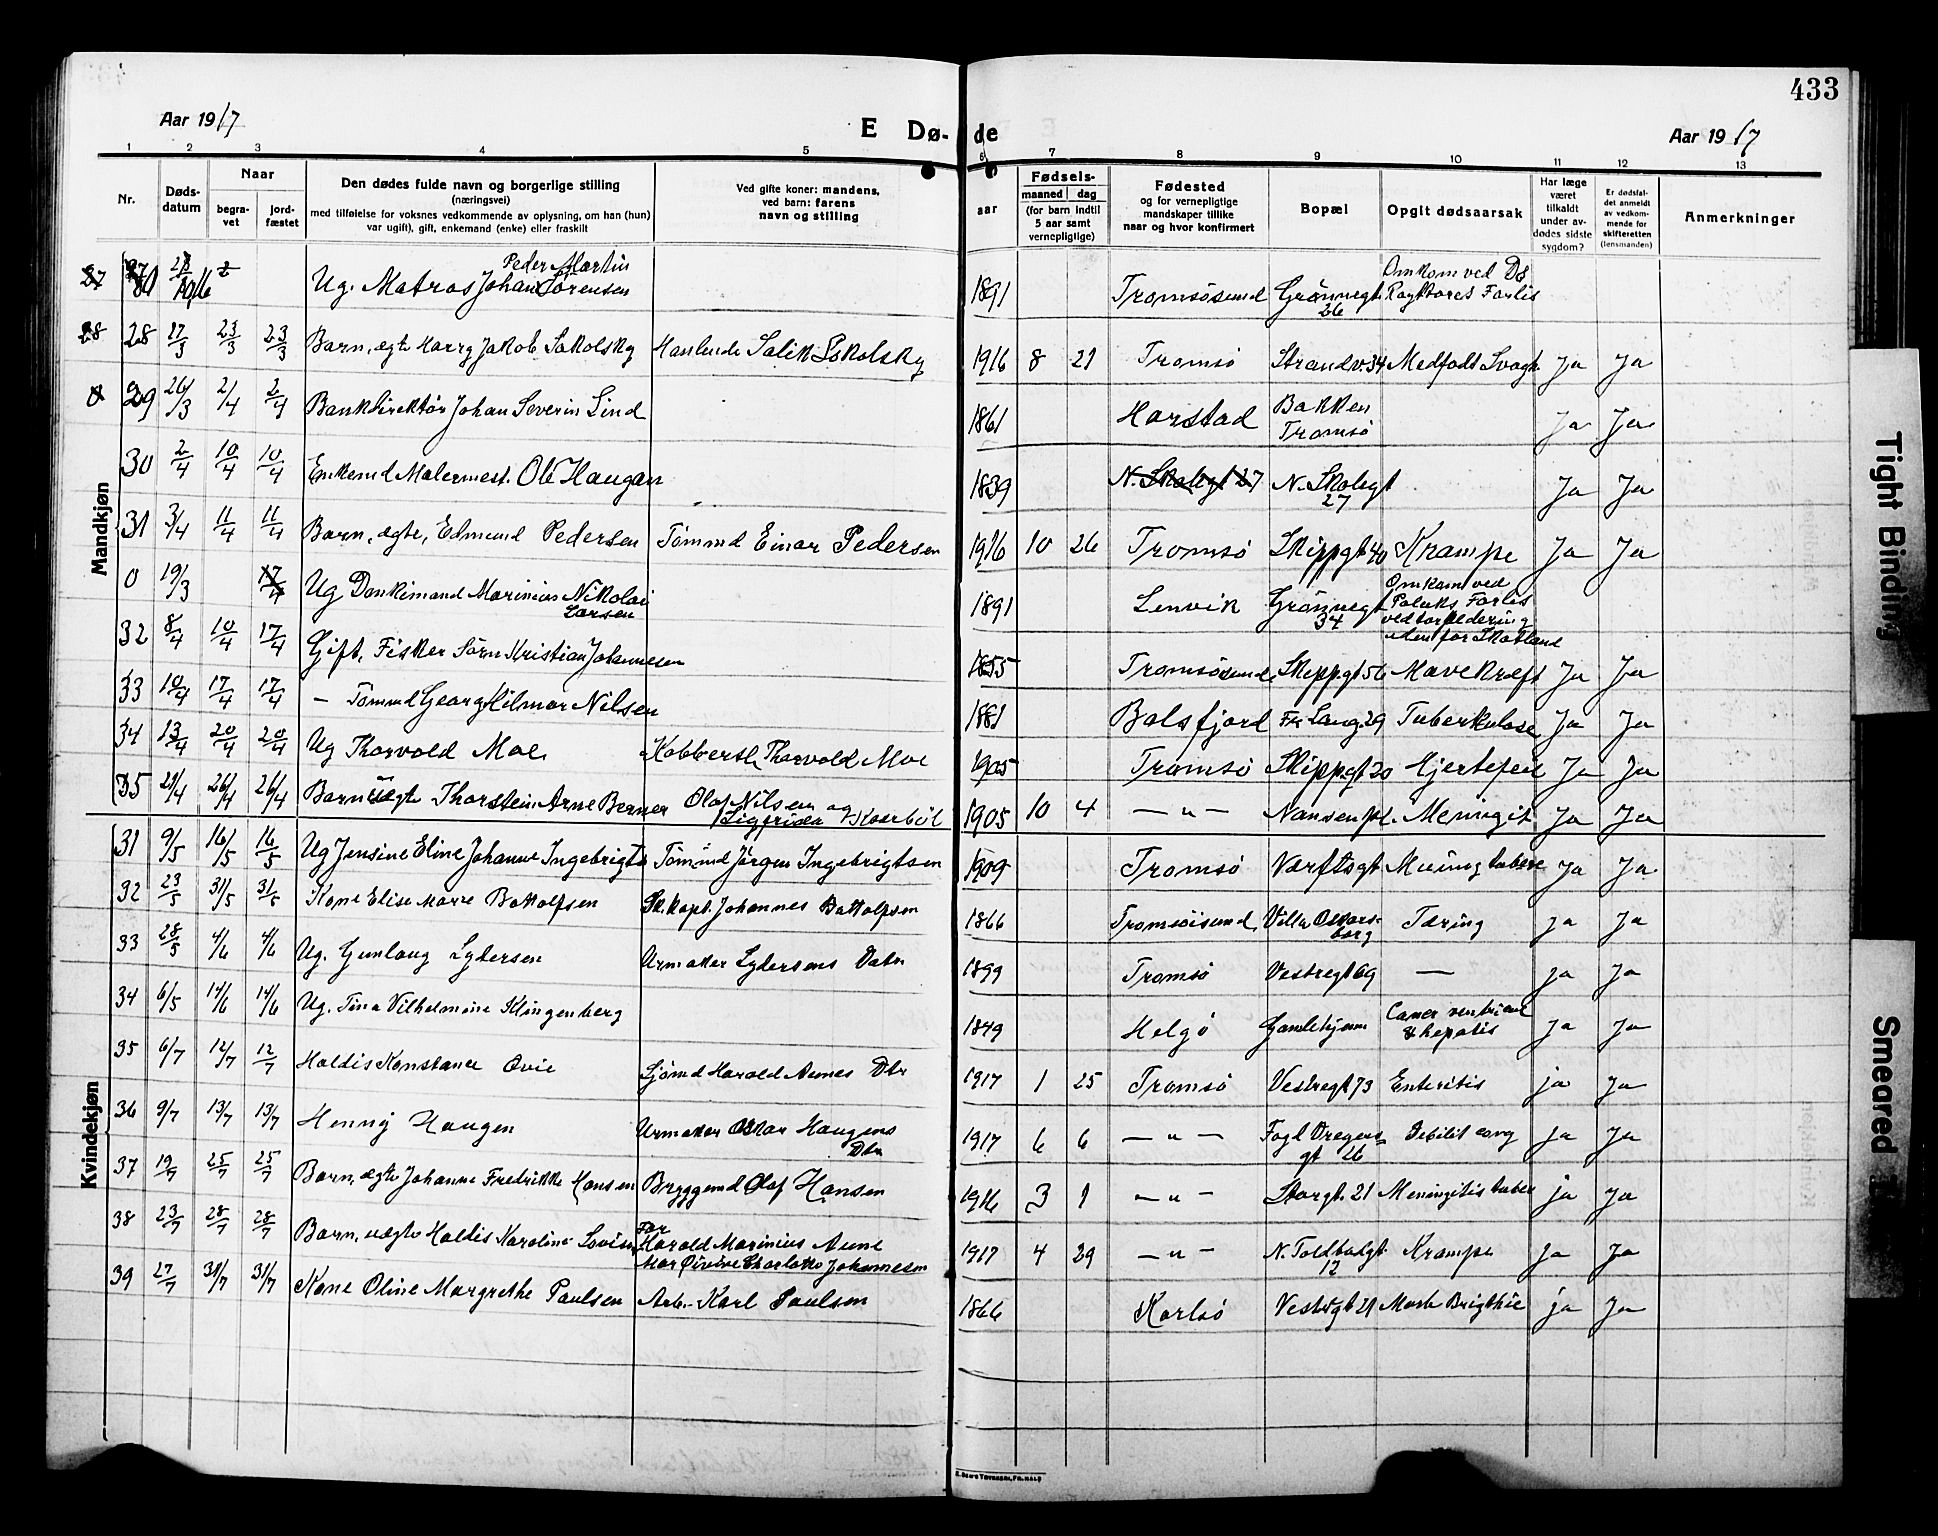 433
Aar 1917
E Dø-
de
Aar 1917
1 2 3 4 5 6 7 8 9 10 11 12 13
Nr.
Døds-
datum
Naar
begra-
vet
jord-
fæstet
Den dødes fulde navn og borgerlige stilling
(næringsvei)
med tilføielse for voksnes vedkommende av oplysning, om han (hun)
var ugift), gift, enkemand (enke) eller fraskilt
Ved gifte koner: mandens,
ved barn: farens
navn og stilling
aar
Fødsels-
maaned dag
(for barn indtil
5 aar samt
vernepligtige)
Fødested
og for vernepligtige
mandskaper tillike
naar og hvor konfirmert
Bopæl
Opgit dødsaarsak
Har læge
været
tilkaldt
under av-
dødes sidste
sygdom?
Er dødsfal-
det anmeldt
av vedkom-
mende for
skifteretten
(lensmanden)
Anmerkninger
Mandkjøn
27 Ug. Matros Johan Peder Martin Sørensen 1891 Tromsøsund Grønnegt. 26 Omkom ved DS Forlis
28 28 17/3 23/3 23/3 Barn, ægte Harry Jakob Sakolsky Hanlende Salik Sakolsky 1916 8 21 Tromsø Strandv. 34 Medfødt Svagh. Ja Ja
0 29 26/3 2/4 2/4 Bankdirektør Johan Severin Lind 1861 Harstad Bakken Tromsø Ja Ja
30 2/4 10/4 10/4 Enkemd Malermest. Ole Haugan 1839 N. Skolegt 27 N. Skolegt 27 Ja Ja
31 3/4 11/4 11/4 Barn, ægte, Edmund Pedersen Tømmd Einar Pedersen 1916 10 26 Tromsø Skippgt 40 Krampe Ja Ja
0 19/3 17/4 Ug Donkimand Marinius Nikolai Larsen 1891 Lenvik Grønnegt 34 Omkom ved Forlis
32 8/4 10/4 17/4 Gift, Fisker Sørn Kristian Johannesen 1855 Tromsøsund Skippgt 56 Mavekræft Ja Ja
33 10/4 17/4 17/4 — Tømmd Georg Hilmar Nilsen 1881 Balsfjord Fr. Lang. 29 Tuberkulose Ja Ja
34 13/4 20/4 20/4 Ug Thorvold Moe Kobbersl. Thorvold Moe 1905 Tromsø Skippgt 20 Hjertefeil Ja Ja
35 21/4 26/4 26/4 Barn uægte Thorstein Arne Berner Olaf Nilsen og 1905 10 4 — " — Nansenpl. Meningit Ja Ja
Kvindekjøn
31 9/5 16/5 16/5 Ug Jensine Eline Johanne Ingebrigts Tømmd Jørgen Ingebrigtsen 1909 Tromsø Værftsgt Ja Ja
32 23/5 31/5 31/5 Kone Elise Marie Bottolfsen Sk.kapt. Johannes Bottolfsen 1866 Tromsøisund Villa Oscarsborg Tæring ja Ja
33 28/5 4/6 4/6 Ug. Gunlaug Lydersen Urmaker Lydersens Datr 1899 Tromsø Vestregt 69 — ja Ja
34 6/5 14/6 14/6 Ug. Tina Vilhelmine Klingenberg 1849 Helgø Gamlehjem Cancer ventriculi & hepatis ja Ja
35 6/7 12/7 12/7 Haldis Konstance Ovie Sjømd Harald Aunes Dtr 1917 1 25 Tromsø Vestregt 73 Enteritis ja Ja
36 9/7 13/7 13/7 Henny Haugen Urmaker Oskar Haugens Dtr 1917 6 6 — " — Fogd Dreyersgt 26 Debilit cong ja Ja
37 19/7 25/7 25/7 Barn, ægte Johanne Fredrikke Hansen Bryggemd Olaf Hansen 1916 3 1 — " — Storgt. 21 Meningitis tuber ja Ja
38 23/7 28/7 28/7 Barn, uægte Haldis Karoline Lovise Far Harald Marinius Aune Mor Øivine Charlotte Johannesen 1917 4 29 — " — N. Toldbodgt. 12 Krampe ja Ja
39 27/7 31/7 31/7 Kone Oline Margrethe Paulsen Arb. Karl Paulsen 1866 Karlsø Vestregt 21 Morb Brigthie ja Ja
Tight Binding
Smeared